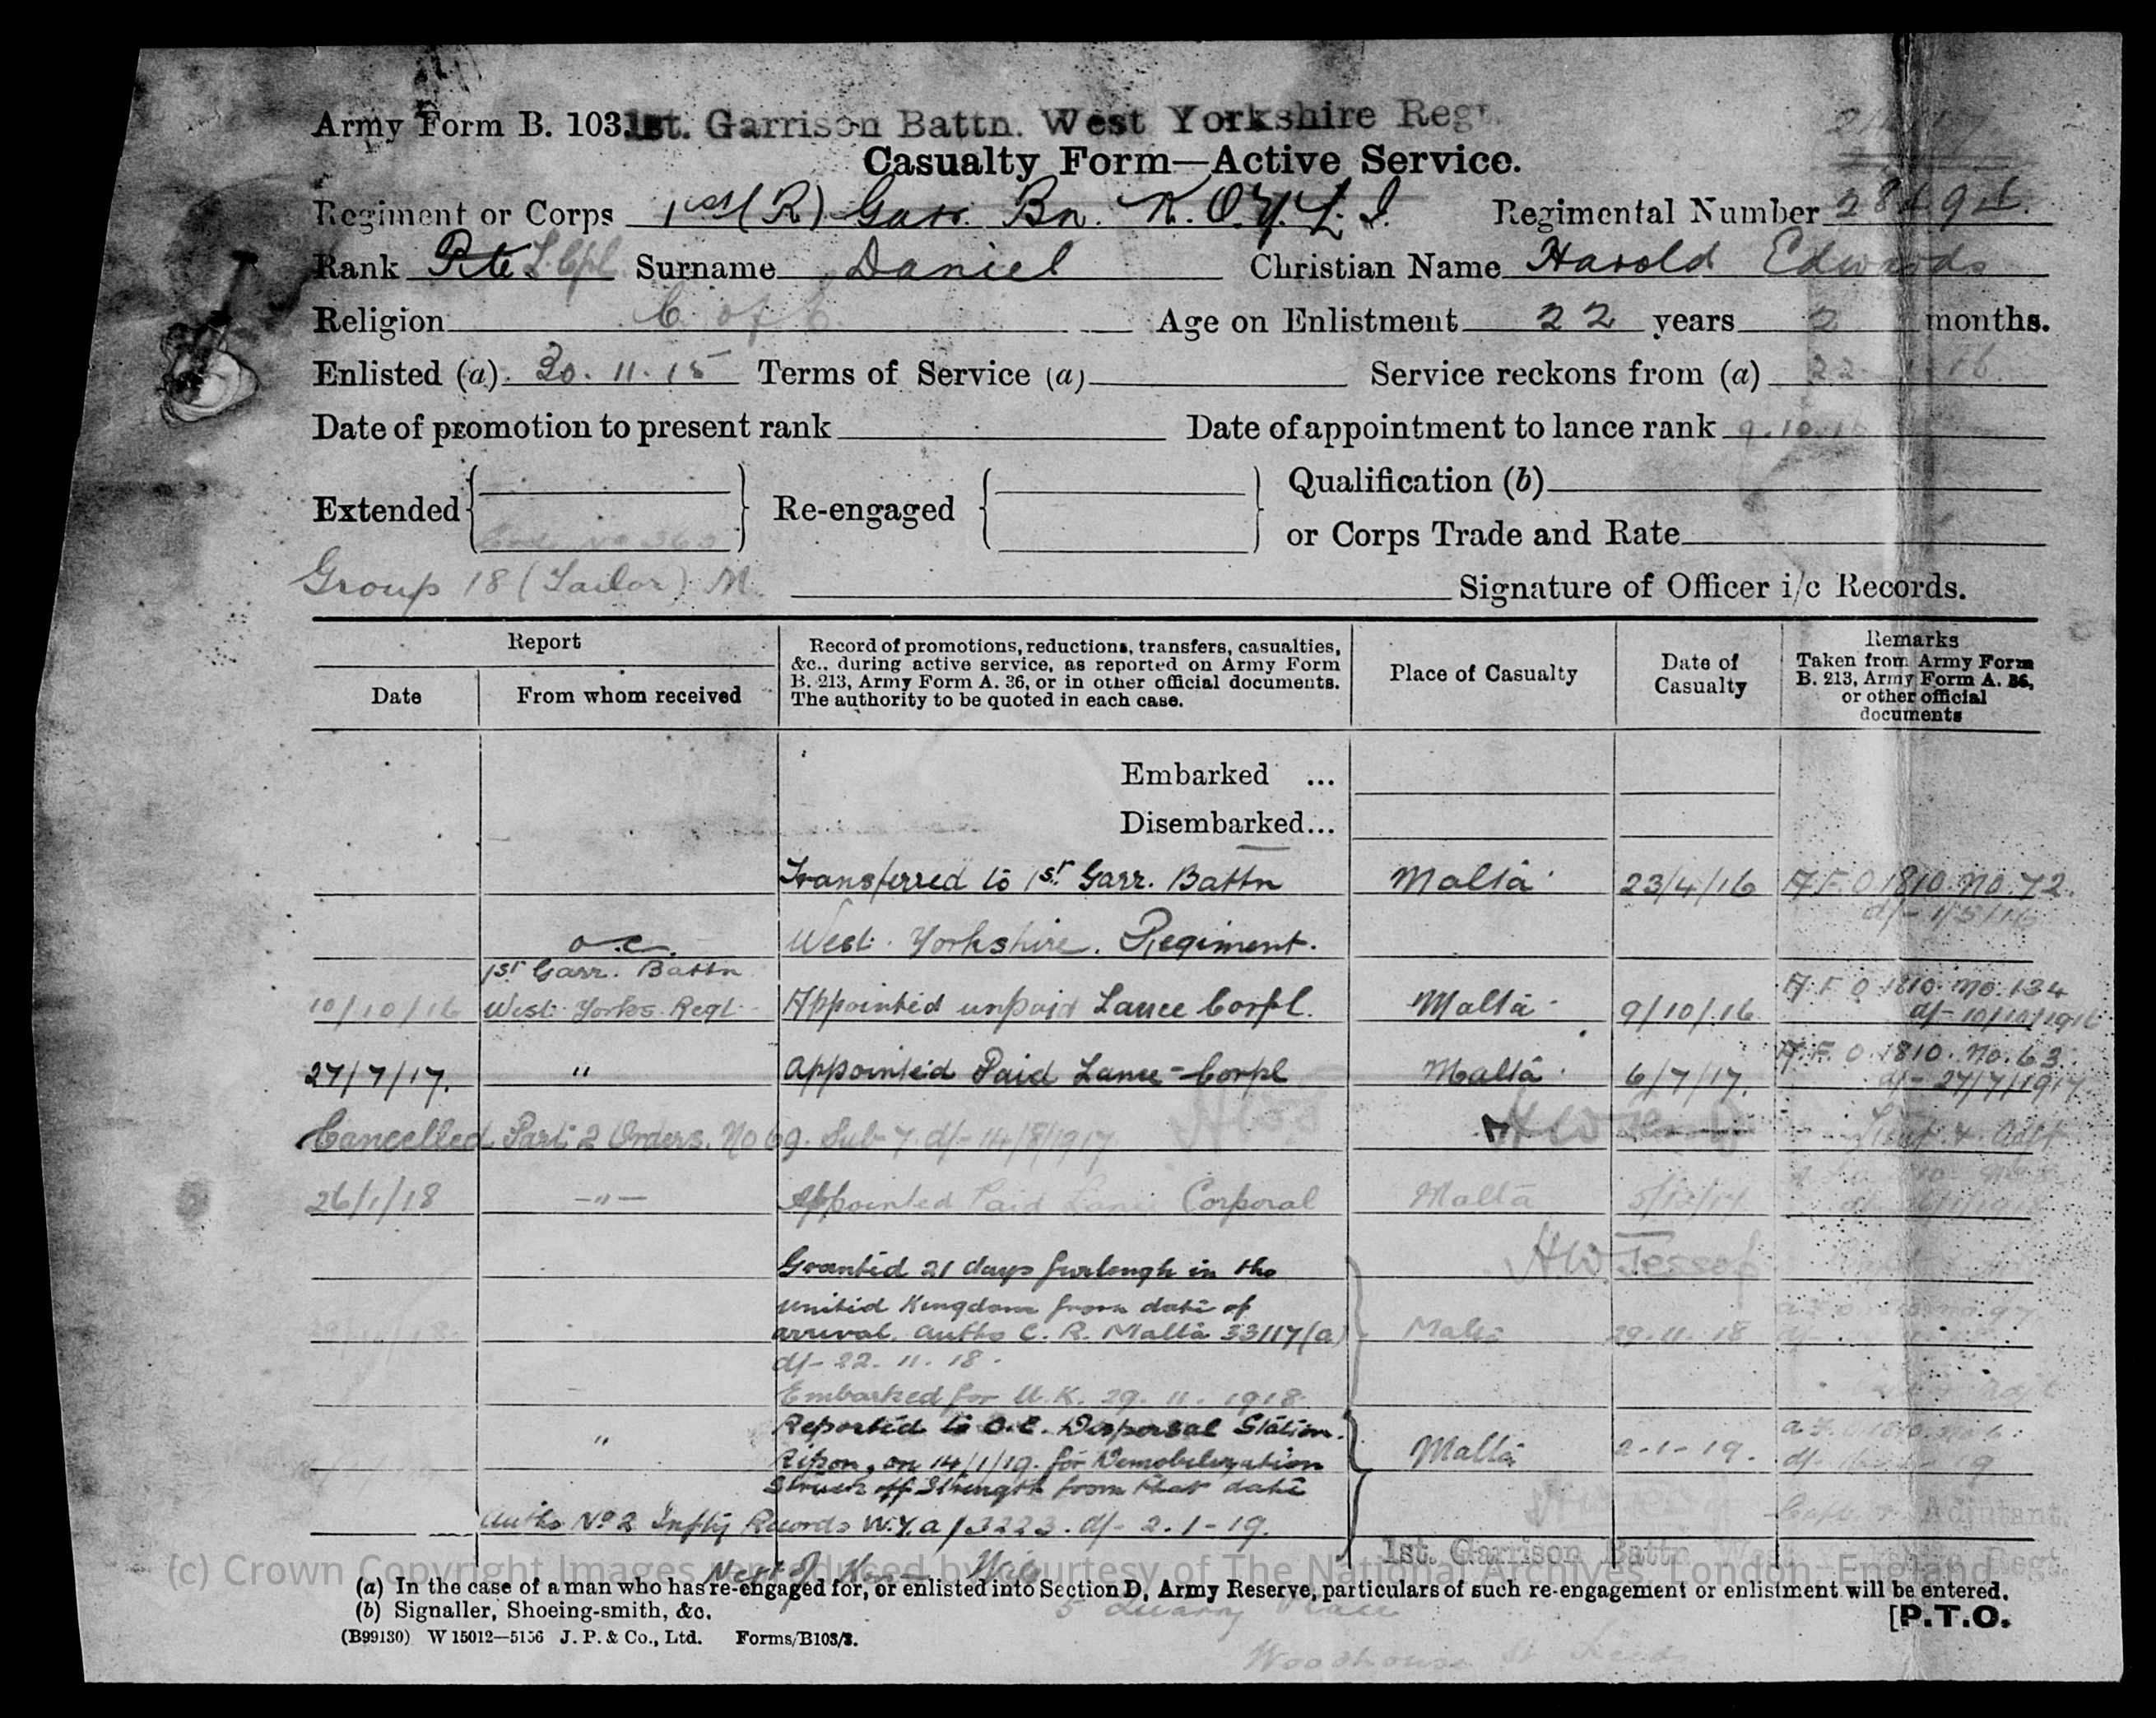 Army Form B. 103. 1st. Garrison Battn. West Yorkshire Regt.
Casualty Form—Active Service.
Regiment or Corps 1st (R) Garr. Bn. K.O.Y.L.I. Regimental Number
Rank Pte L/Cpl Surname Daniel Christian Name Harold Edwards
Religion C of E Age on Enlistment 22 years 2 months.
Enlisted (a) 30.11.15 Terms of Service (a) Service reckons from (a) 22
Date of promotion to present rank Date of appointment to lance rank 9.10.16
Extended Re-engaged Qualification (b)
or Corps Trade and Rate
Group 18 (Tailor) M. Signature of Officer i/c Records.
Report
Date From whom received
Record of promotions, reductions, transfers, casualties, &c., during active service, as reported on Army Form B. 213, Army Form A. 36, or in other official documents. The authority to be quoted in each case.
Place of Casualty
Date of Casualty
Remarks
Taken from Army Form B. 213, Army Form A. 36, or other official documents
Embarked ...
Disembarked...
Transferred to 1st Garr. Battn Malta 23/4/16 A.F.O.1810.No.72.
d/- 1/5/16
o.c. West. Yorkshire. Regiment.
1st Garr. Battn
10/10/16 West Yorks Regt Appointed unpaid Lance Corpl. Malta 9/10/16 A.F.O.1810.No.134
d/- 10/10/1916
27/7/17. " Appointed Paid Lance-Corpl Malta 6/7/17. A.F.O.1810.No.63.
d/- 27/7/1917
Cancelled Part 2 Orders. No 69. Sub 7. d/- 14/8/1917 Lieut & Adjt
26/1/18 -"- Appointed Paid Lance Corporal Malta 5/12/17
H.W. Jessop
Granted 21 days furlough in the
United Kingdom from date of
arrival. Autho C.R. Malta 33117(a) Malta 29.11.18
d/- 22.11.18.
Embarked for U.K. 29.11.1918
" Reported to O.C. Dispersal Station. Malta 2-1-19.
Ripon, on 14/1/19. for Demobilization
Struck off Strength from that date
Autho No 2 Infty Records W.Y.A/3223. d/- 2.1-19. Capt. & Adjutant.
1st. Garrison Battn. West Regt.
Next of Kin - Wife
(c) Crown Copyright Images reproduced by courtesy of The National Archives, London, England.
(a) In the case of a man who has re-engaged for, or enlisted into Section D, Army Reserve, particulars of such re-engagement or enlistment will be entered.
(b) Signaller, Shoeing-smith, &c.
5 Quarry Place
[P.T.O.
(B99130) W 15012—5156 J. P. & Co., Ltd. Forms/B103/3.
Woodhouse St Leeds